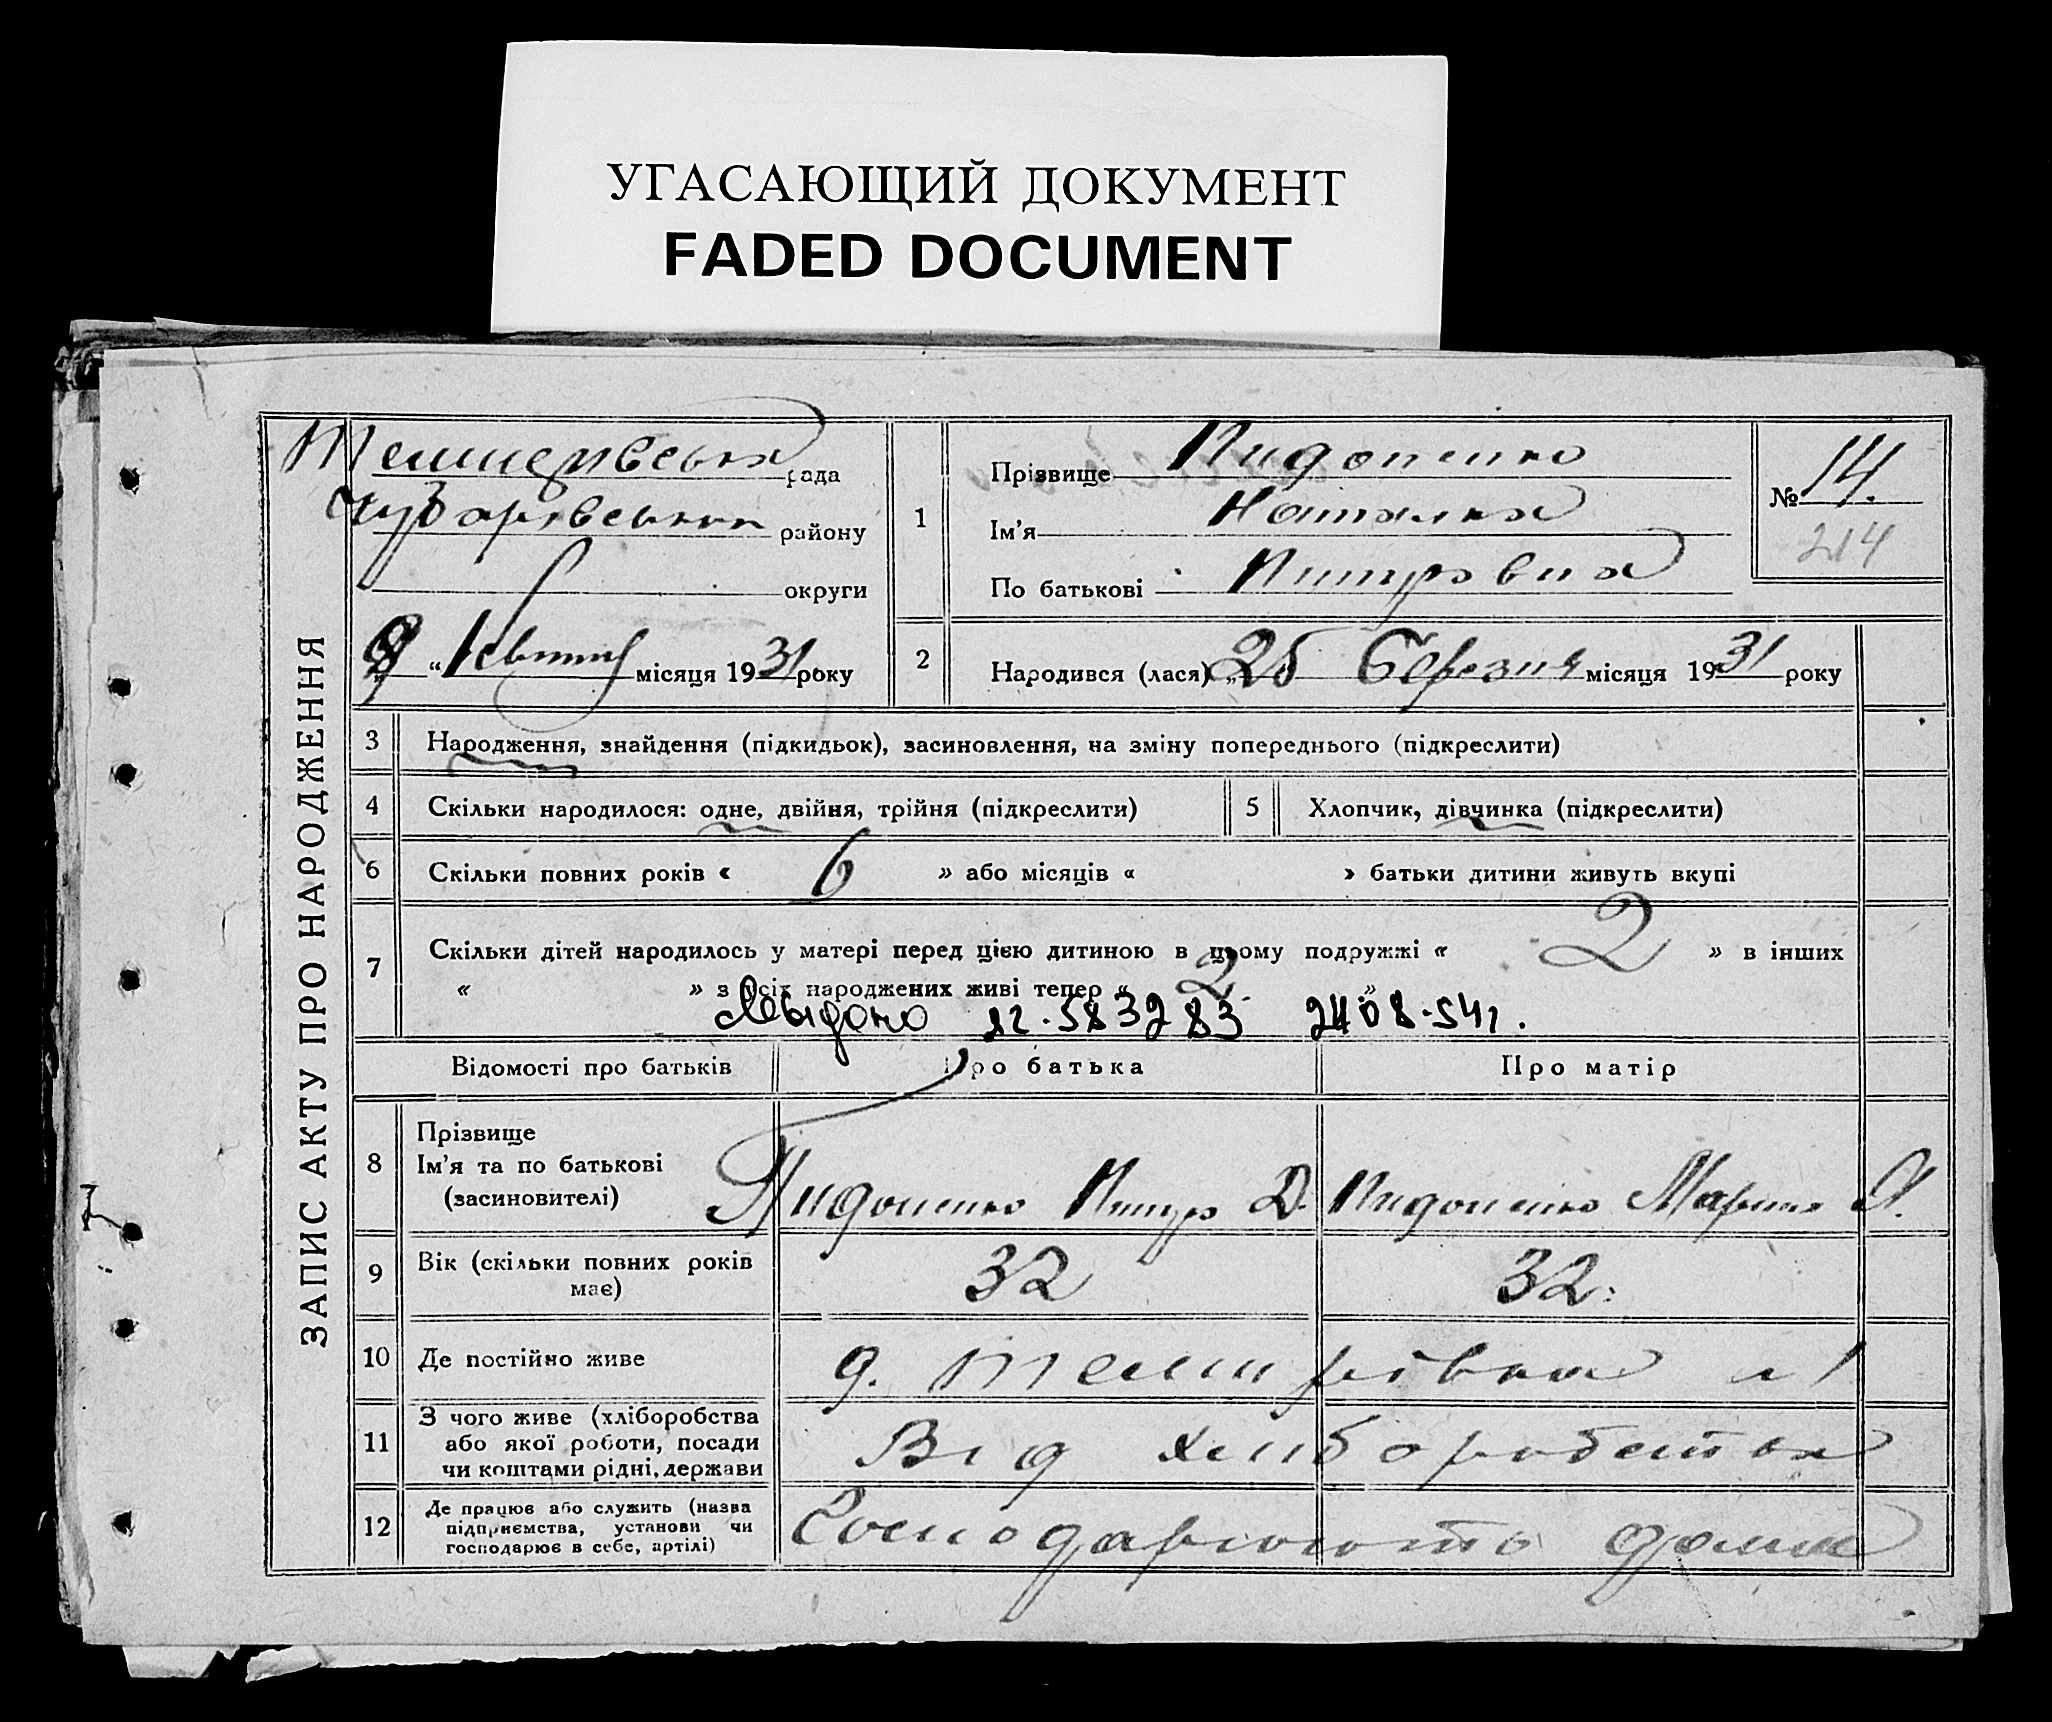 УГАСАЮЩИЙ ДОКУМЕНТ
FADED DOCUMENT
ЗАПИС АКТУ ПРО НАРОДЖЕННЯ
рада
Чубарівського району
округи
9 " Квітня місяця 1931 року
1
Прізвище Пидопенко
Ім'я Наталка
По батькові Питровна
№ 14.
214
2
Народився (лася) „25 Березня місяця 1931 року
3 Народження, знайдення (підкидьок), засиновлення, на зміну попереднього (підкреслити)
4 Скільки народилося: одне, двійня, трійня (підкреслити)
5 Хлопчик, дівчинка (підкреслити)
6 Скільки повних років « 6 » або місяців « » батьки дитини живуть вкупі
7 Скільки дітей народилось у матері перед цією дитиною в цьому подружжі « 2 » в інших
« » з усіх народжених живі тепер « 2 »
583283 2408.54г.
Відомості про батьків
Про батька
Про матір
8 Прізвище
Ім'я та по батькові
(засиновителі)
Пидопенко Питро Д.
Пидопенко Мария
9 Вік (скільки повних років
має)
32
32
10 Де постійно живе
11 З чого живе (хліборобства
або якої роботи, посади
чи коштами рідні, держави
Від хлиборобства
12 Де працює або служить (назва
підприємства, установи чи
господарює в себе, артілі)
дома